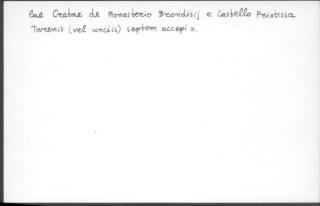 lae Cretae de Monasterio Brondisij e Castello Priotissa
Tarenis (vel unciis) septem accepi ».